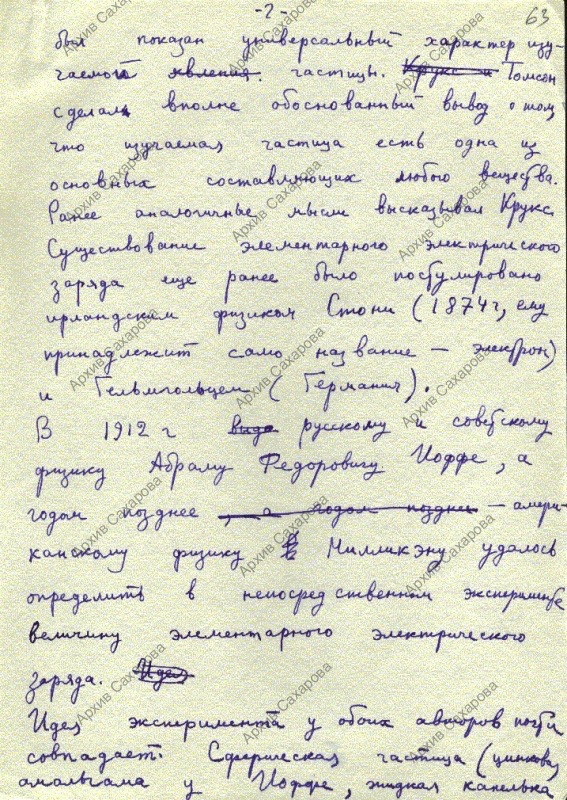 -2-
63
был показан универсальный характер изу-
чаемой явления. частицы. Крукс и Томсон
сделал вполне обоснованный вывод о том,
что изучаемая частица есть одна из
основных составляющих любого вещества.
Ранее аналогичные мысли высказывал Крукс.
Существование элементарного электрического
заряда еще ранее было постулировано
ирландским физиком Стони (1874 г, ему
принадлежит само название — электрон)
и Гельмгольцем (Германия).
В 1912 г русскому и советскому
физику Абраму Федоровичу Иоффе, а
годом позднее , а годом поздни — амери-
канскому физику Милликэну удалось
определить в непосредственном эксперименте
величину элементарного электрического
заряда. Идея
Идея эксперимента у обоих авторов почти
совпадает. Сферическая частица (цинковая
амальгама у Иоффе, жидкая капелька
Архив Сахарова